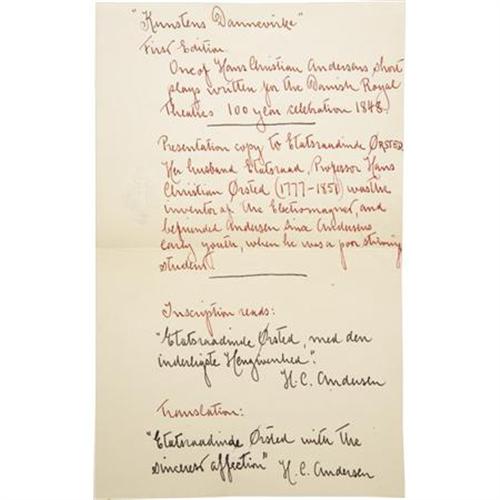 "Kunstens Dannevirke"
First Edition.
One of Hans Christian Andersens short
plays written for the Danish Royal
Theatres 100 year celebration 1848.
Presentation copy to Etatsraadinde ØRSTED.
Her husband Etatsraad, Professor Hans
Christian Ørsted (1777-1851) was the
inventor of the Electromagnet, and
befriended Andersen since Andersens
early youth, when he was a poor striving
student.
Inscription reads:
"Etatsraadinde Ørsted, med den
inderligste Hengivenhed".
H. C. Andersen
Translation:
"Etatsraadinde Ørsted with the
sincerest affection" H. C. Andersen